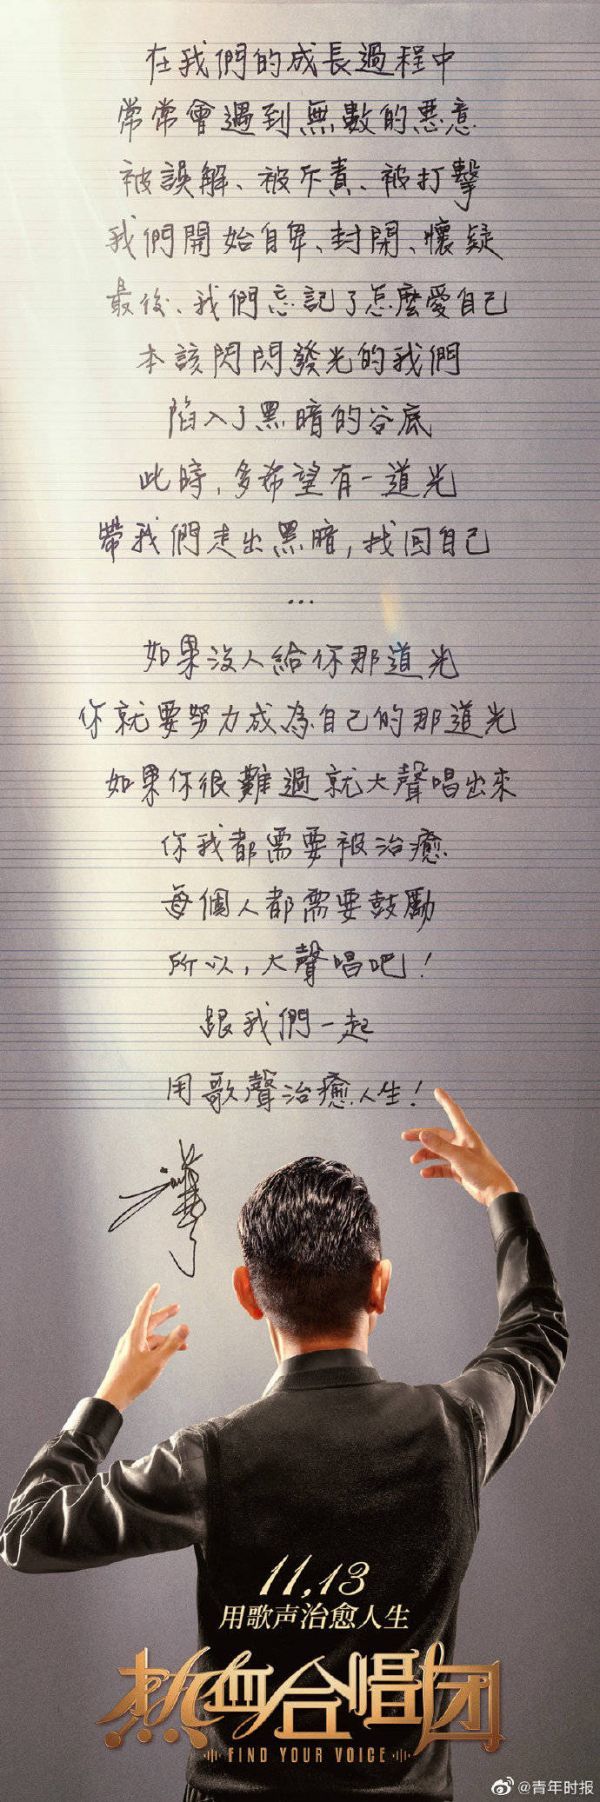 在我們的成長過程中
常常會遇到無數的惡意
被誤解、被斥責、被打擊
我們開始自卑、封閉、懷疑
最後、我們忘記了怎麼愛自己
本該閃閃發光的我們
陷入了黑暗的谷底
此時，多希望有一道光
帶我們走出黑暗，找回自己
...
如果沒人給你那道光
你就要努力成為自己的那道光
如果你很難過就大聲唱出來
你我都需要被治癒
每個人都需要鼓勵
所以，大聲唱吧！
跟我們一起
用歌聲治癒人生！
11.13
用歌声治愈人生
热血合唱团
FIND YOUR VOICE
@青年时报